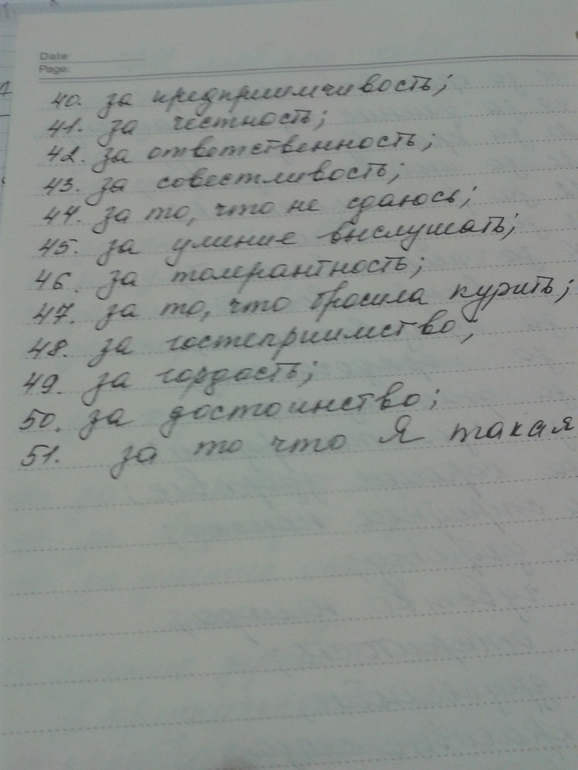 Date
Page:
40. за предприимчивость;
41. за честность;
42. за ответственность;
43. за совестливость;
44. за то, что не сдаюсь;
45. за умение выслушать;
46. за толерантность;
47. за то, что бросила курить;
48. за гостеприимство;
49. за гордость;
50. за достоинство;
51. за то что Я такая